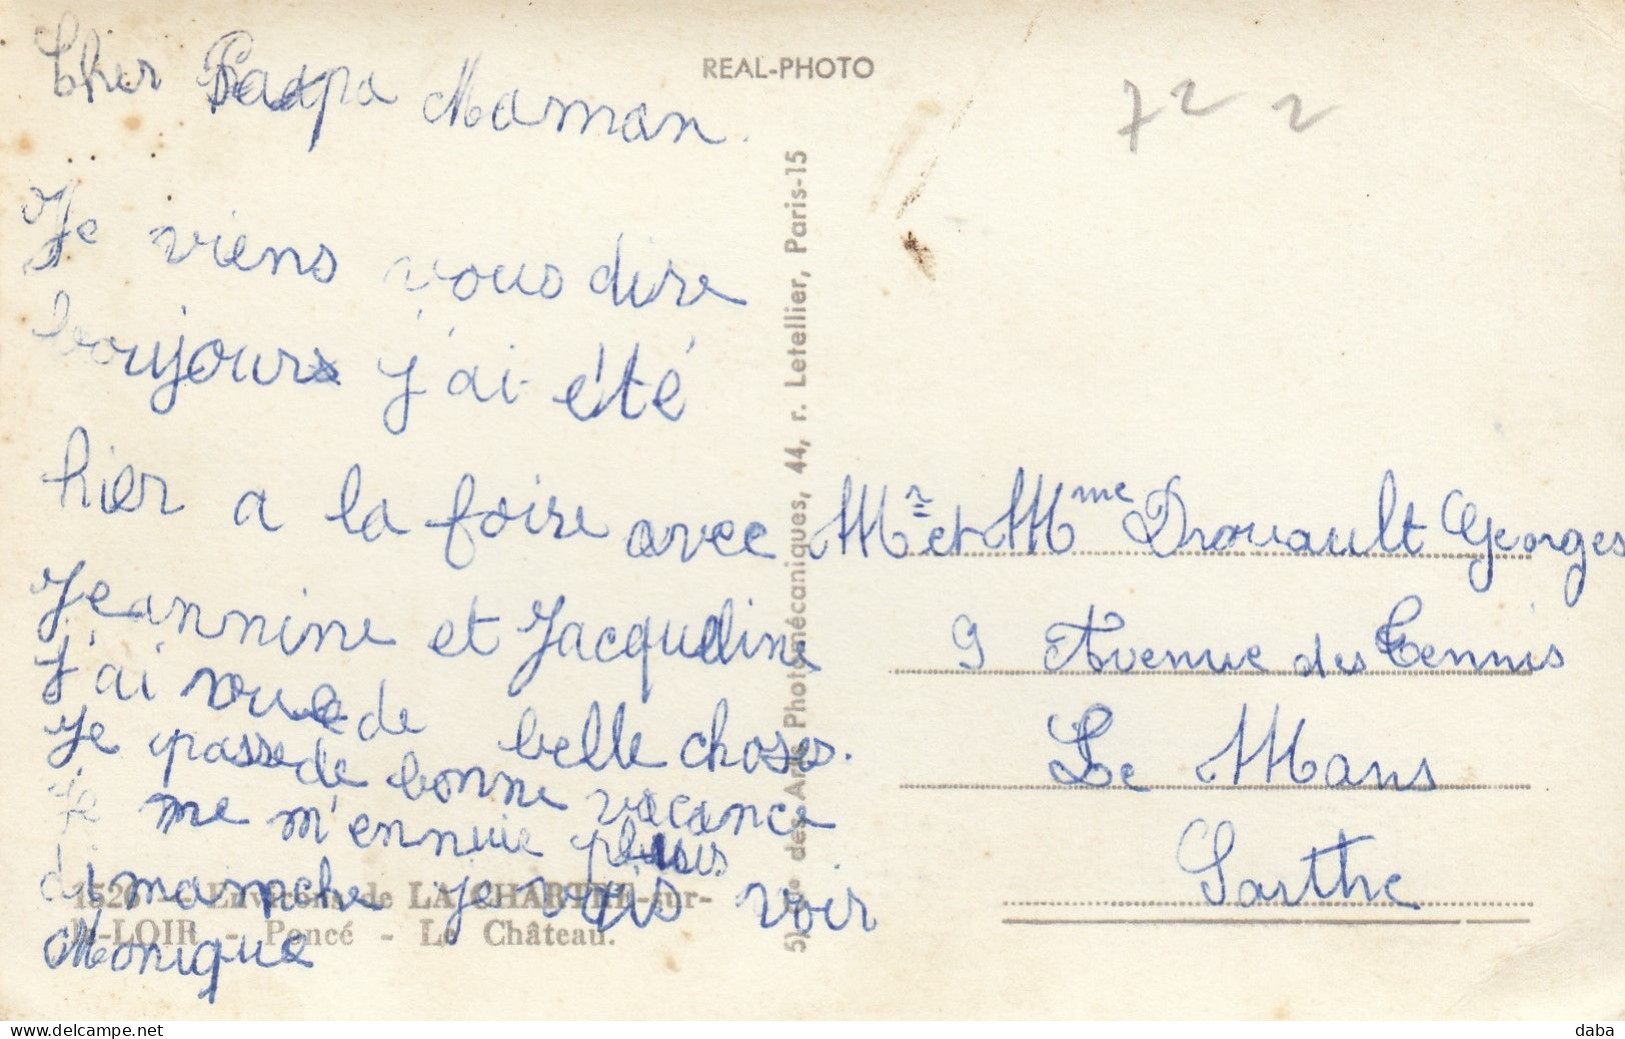 Cher Papa Maman.
Je viens vous dire
boujours j'ai été
hier a la foire avec
Jeannine et Jacqueline
j'ai vue de belle choses.
Je passe de bonne vacance
Je me m'ennuie
dimanche je vais voir
Monique
REAL-PHOTO
72 2
des Arts Photomécaniques, 44, r. Letellier, Paris-15
Mr et Mme Drouault Georges
9 Avenue des Tennis
Le Mans
Sarthe
1526 - Environs de LA CHARTRE-sur-
le-LOIR - Poncé - Le Château.
delcampe.net
daba